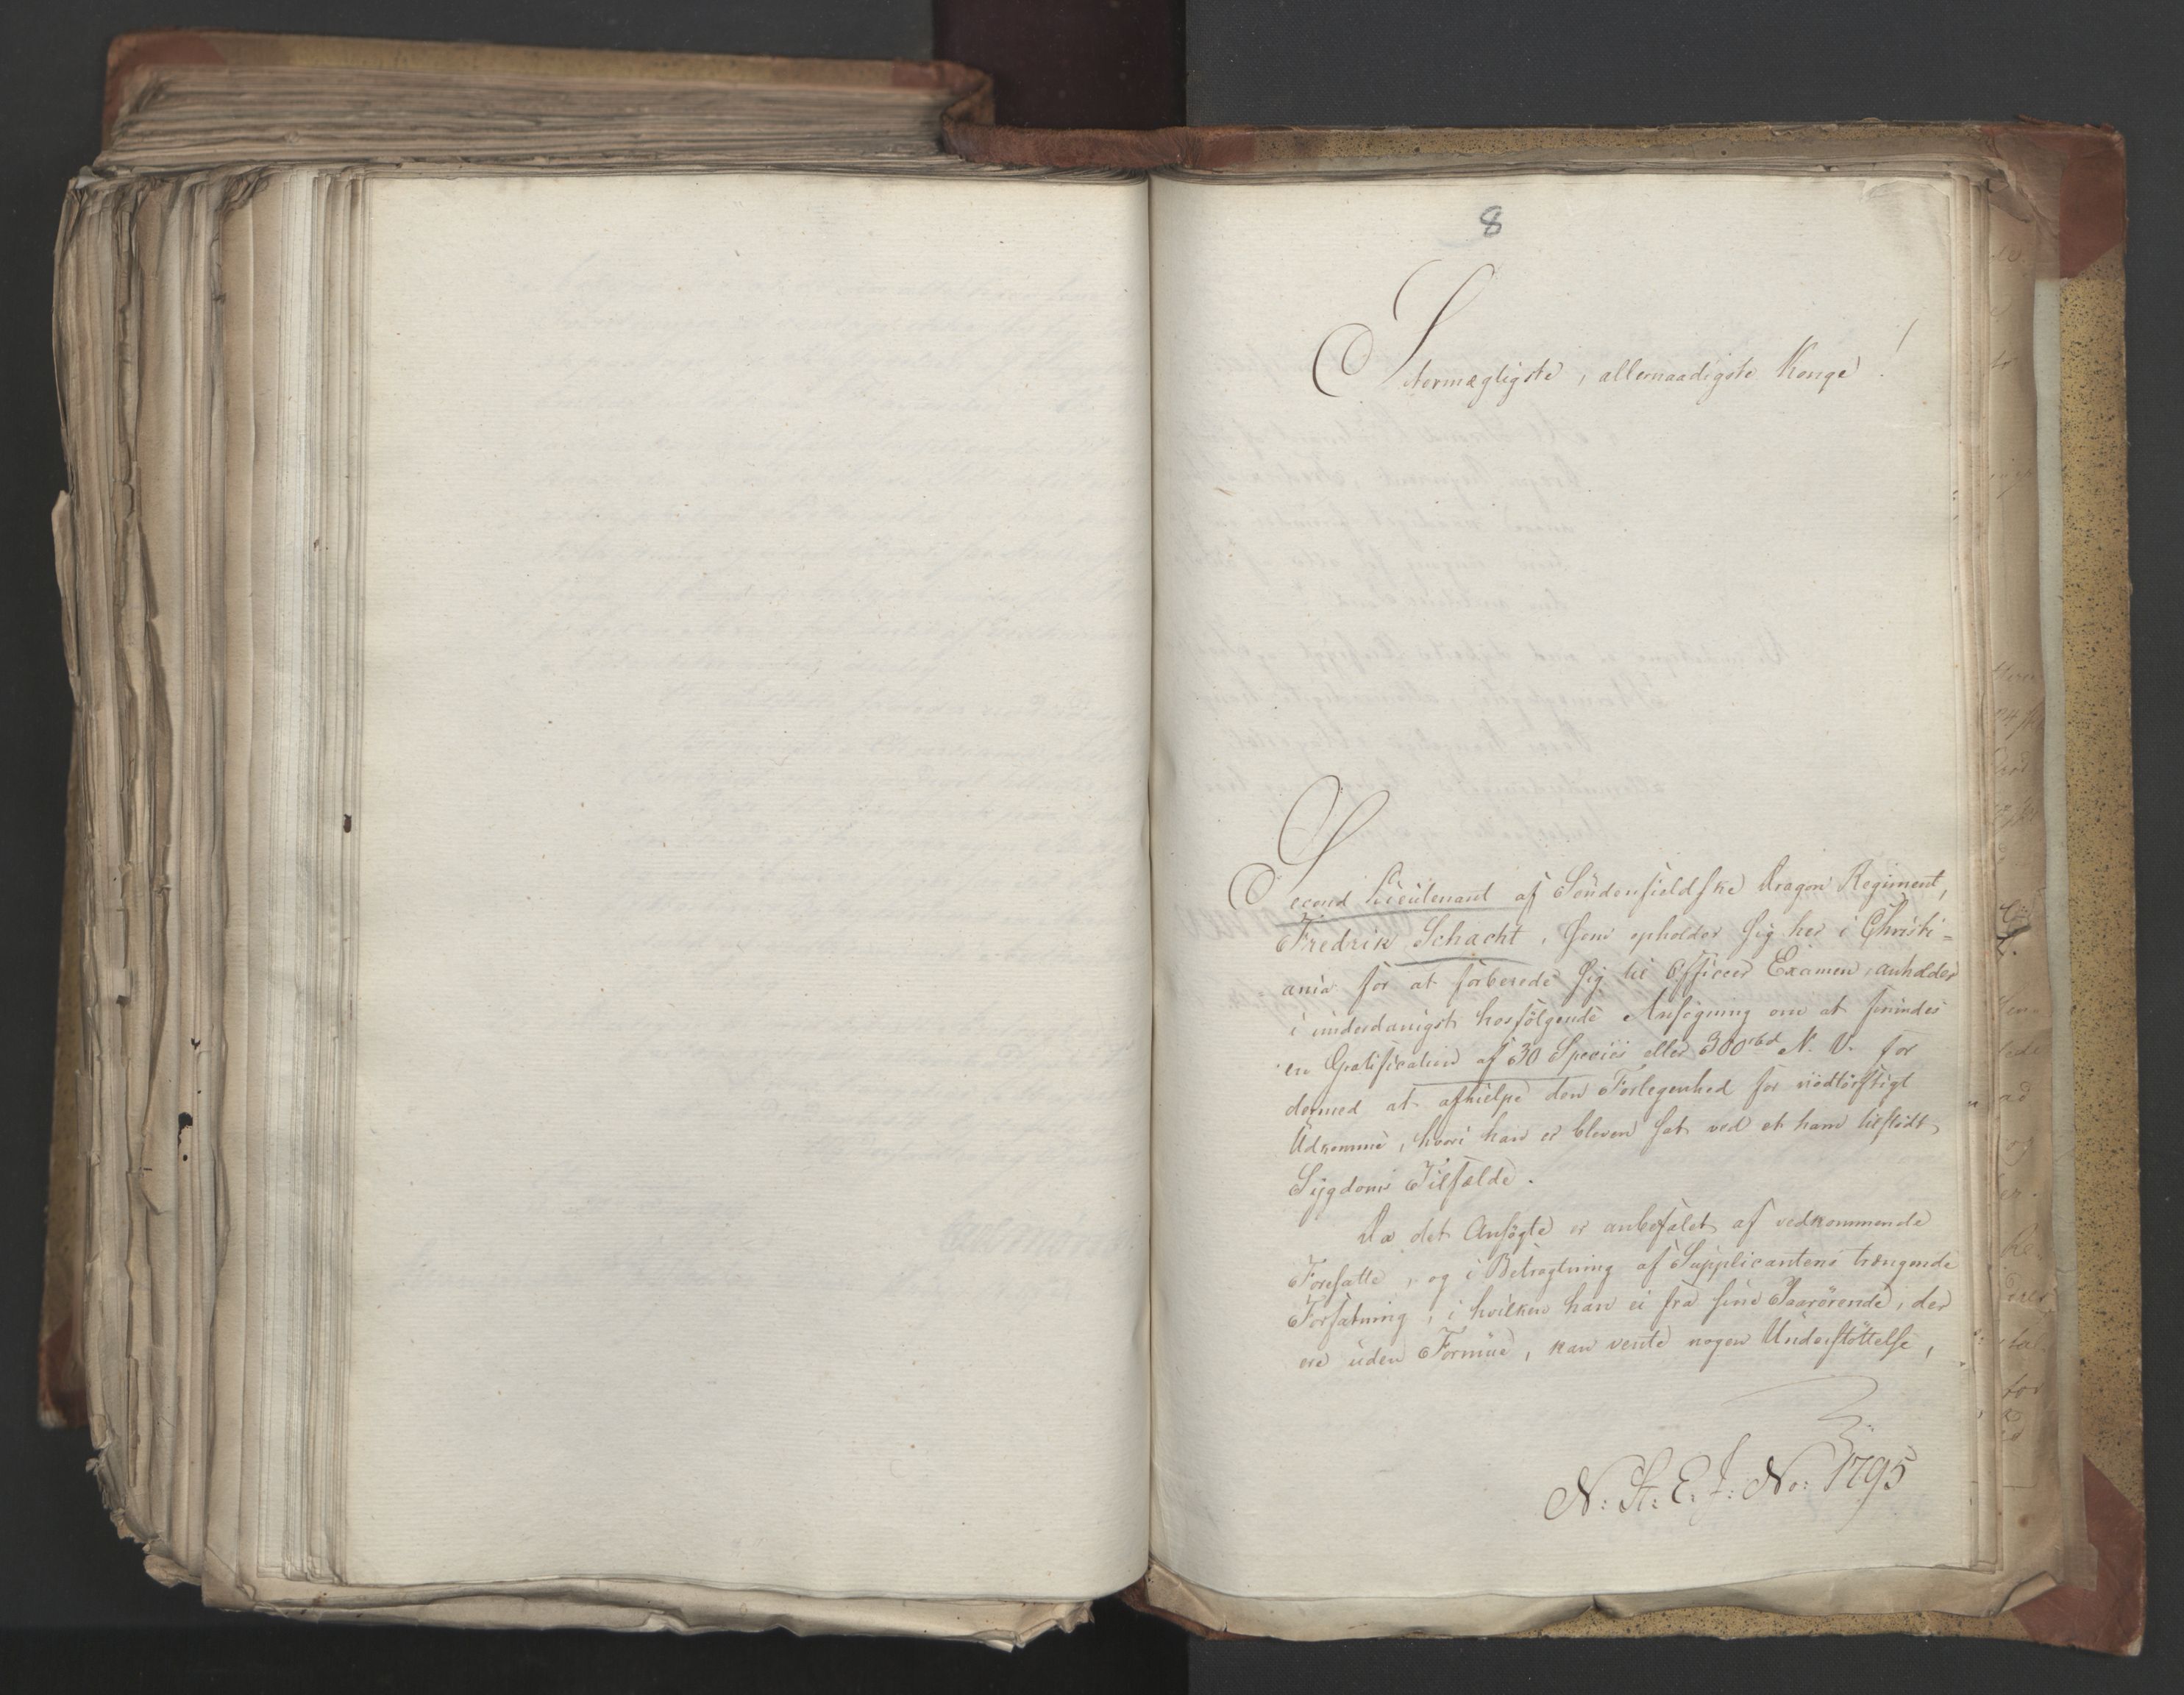 8
Stormægtigste, allernaadigste Konge!
Second Lieutenant af Søndenfieldske Dragon Regiment,
Fredrik Schacht, som opholder sig her i Christi=
ania for at forberede sig til Officeer Examen, anholder
i underdanigst hosfølgende Ansøgning om at forundes
en Gratification af 30 Species eller 300 rbd N. V. for
dermed at afhielpe den Forlegenhed for nødtørftigt
Udkomme, hvori han er bleven sat ved et ham tilstødt
Sygdoms Tilfælde.
Da det Ansøgte er anbefalet af vedkommende
Foresatte, og i Betragtning af Supplicantens trængende
Forfatning, i hvilken han ei fra sine Paarørende, der
ere uden Formue, kan vente nogen Understøttelse,
N: St: E. J: No: 1795